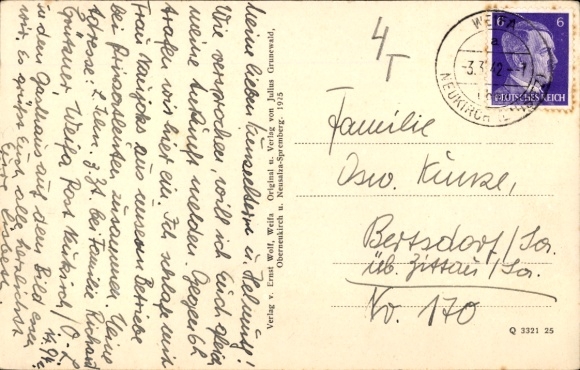 Meine lieben Kunzeltern u. Helmut!
Wie versprochen, will ich Euch gleich
meine Ankunft melden. Gegen 6 h
trafen wir hier ein. Ich schlafe mit
Frau aus unserm Betriebe
bei Privatleuten zusammen. Meine
Adresse: z. Zt. bei Familie Richard
Weifa, Post Neukirch/O.-L.
auf dem Bild
wir. Es grüßt Euch alle herzlichst
Eure
Verlag v. Ernst Wolf, Weifa Original u. Verlag von Julius Grunewald,
Oberneukirch u. Neusalza-Spremberg. 1935
4
T
WEIFA
a
NEUKIRCH
6 6
DEUTSCHES REICH
Familie
Osw. Kunze,
Bertsdorf/Sa.
üb. Zittau/Sa.
No. 170
Q 3321 25